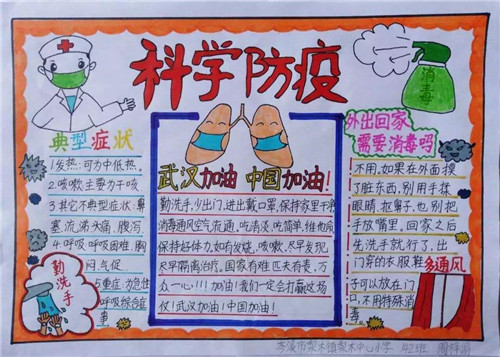 科学防疫
消毒
典型症状
1发热:可为中低热。
2.咳嗽:主要为干咳.
3其它不典型症状:鼻
塞.流涕头痛,腹泻
4.呼吸:呼吸困难,胸
闷,气促
5重症:为急性
呼吸综合症
勤洗手
武汉加油 中国加油!
勤洗手,少出门,进出戴口罩,保持家里干净
消毒通风空气流通,吃清淡,吃简单,维他命
保持好体力.如有发烧,咳嗽,尽早发现
尽早隔离治疗。国家有难匹夫有责,万
众一心!!!加油!我们一定会打赢这场
仗!武汉加油!中国加油!
外出回家
需要消毒吗
不用,如果在外面摸
了脏东西,别用手揉
眼睛,抠鼻子,也别把
手放嘴里。回家之后
先洗手就行了,出
门穿的衣服鞋
子可以放在门
口,不用特殊消
毒
多通风
中心小学 42班